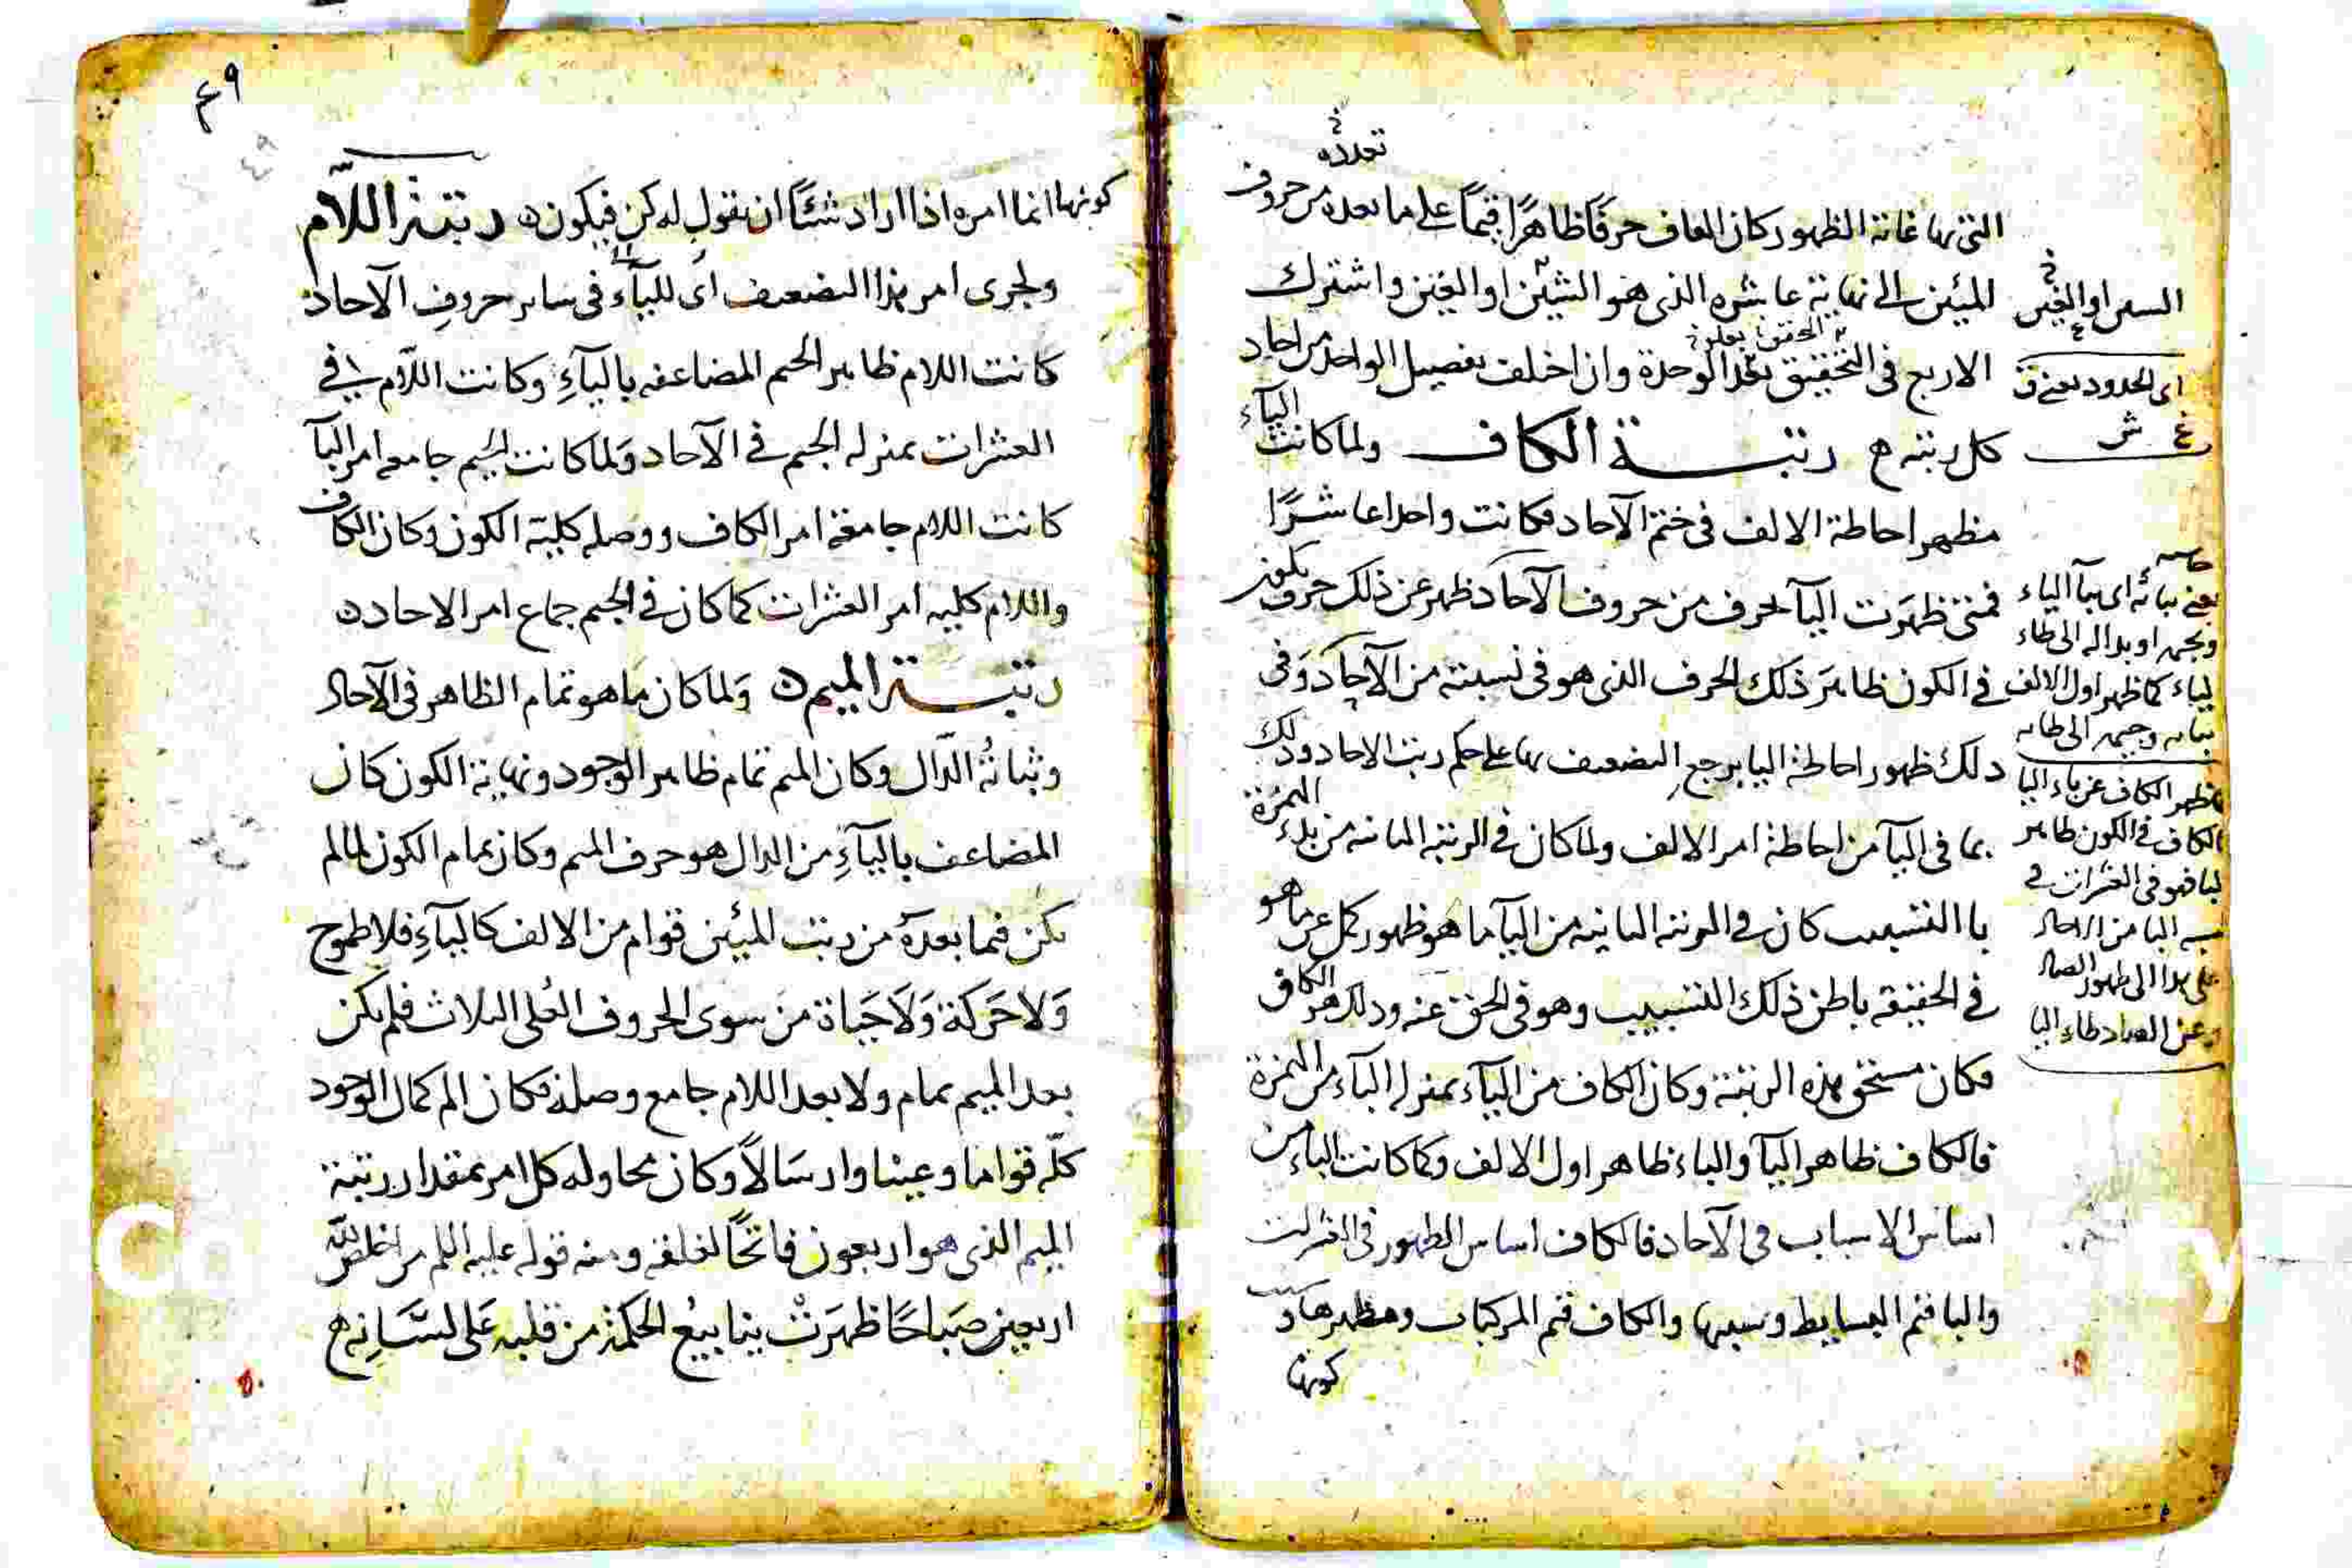 تعدده
التى نهاغاية الظهور كان القاف حرفًا ظاهرًا قيمًا على ما بعده من حروف
المئين الى نهاية عاشره الذى هو الشين او الغين واشترك
الاربع فى التحقيق بحد الوحدة وان اختلف تفصيل الواحد من احاد
كل رتبة رتبة الكاف ولما كانت الياء
مظهر احاطة الالف فى ختم الآحاد فكانت واحدا عاشرًا
فمتى ظهرت اليآ لحرف من حروف الآحاد ظهر عن ذلك حرف يكون
فى الكون ظاهر ذلك الحرف الذى هو فى نسبته من الآحاد وفى
ذلك ظهور احاطة اليا يرجع التضعيف بها على حكم رتب الاحاد وذلك
بما فى اليآ من احاطة امر الالف ولما كان فى الرتبة الثانية من بدء الهمزة
باالتسبيب كان فى الرتبة الثانية من اليآ ما هو ظهور كمل عن ما هو
فى الحقيقة باطن ذلك التسبيب وهو فى الحق عنه وذلك هو الكاف
فكان مستحق هذه الرتبة وكان الكاف من اليآء بمنزلة البآء من الهمزة
فالكاف ظاهر اليآ والباء ظاهر اول الالف وكما كانت الباء من
اساس الاسباب فى الآحاد فالكاف اساس الظهور فى العشرات
والبا قيم البسايط وسببها والكاف قيم المركبات ومظهرها و
كونها
السين او الغين
اى الحدود يعنى ق
غ ش
يعنى ببائه اى ببآ الياء
وبجيمه او بداله الى طاء
لياء كما ظهر اول الالف
ببائه وجيمه الى طائه
يظهر الكاف عن باء اليا
الكاف فى الكون ظاهر
لبا فهو فى العشرات فى
نسبه البا من الاحاد
على هذا الى ظهور الصاد
وعن الصاد طاء اليا
٤٩
كونها انما امره اذا اراد شيئًا ان يقول له كن فيكون ه رتبة اللام
ولجرى امر هذا التضعيف اى للياء فى ساير حروف الآحاد
كانت اللام ظاهر الجيم المضاعفه باليآء وكانت اللام فى
العشرات بمنزله الجيم فى الآحاد ولما كانت الجيم جامعه امر البآ
كانت اللام جامعة امر الكاف ووصله كلية الكون وكان الكاف
واللام كليه امر العشرات كما كان فى الجيم جماع امر الاحاد ه
رتبة الميم ه ولما كان ما هو تمام الظاهر فى الآحاد
وثباته الدال وكان الميم تمام ظاهر الوجود ونهاية الكون كان
المضاعف باليآء من الدال هو حرف الميم وكان تمام الكون لما لم
يكن فيما بعده من رتب المئين قوام من الالف كاليآء فلا طموح
ولا حركة ولا حياة من سوى الحروف العلى الثلاث فلم يكن
بعد الميم تمام ولا بعد اللام جامع وصلة فكان الميم كمال الوجود
كله قواما وعينا وارسالًا وكان محاوله كل امر بمقدار رتبة
الميم الذى هو اربعون فاتحًا لغلقه ومنه قوله عليه السلم من اخلص لله
اربعين صباحًا ظهرت ينابيع الحكمة من قلبه على لسانه